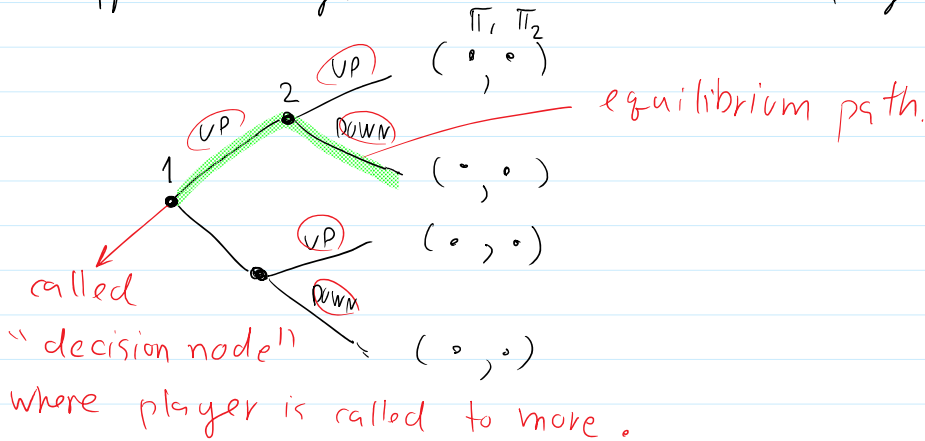 π₁ π₂
UP
( • , • )
2
equilibrium path.
UP
DOWN
1
( • , • )
UP
( • , • )
called
DOWN
"decision node"
( • , • )
where player is called to move.